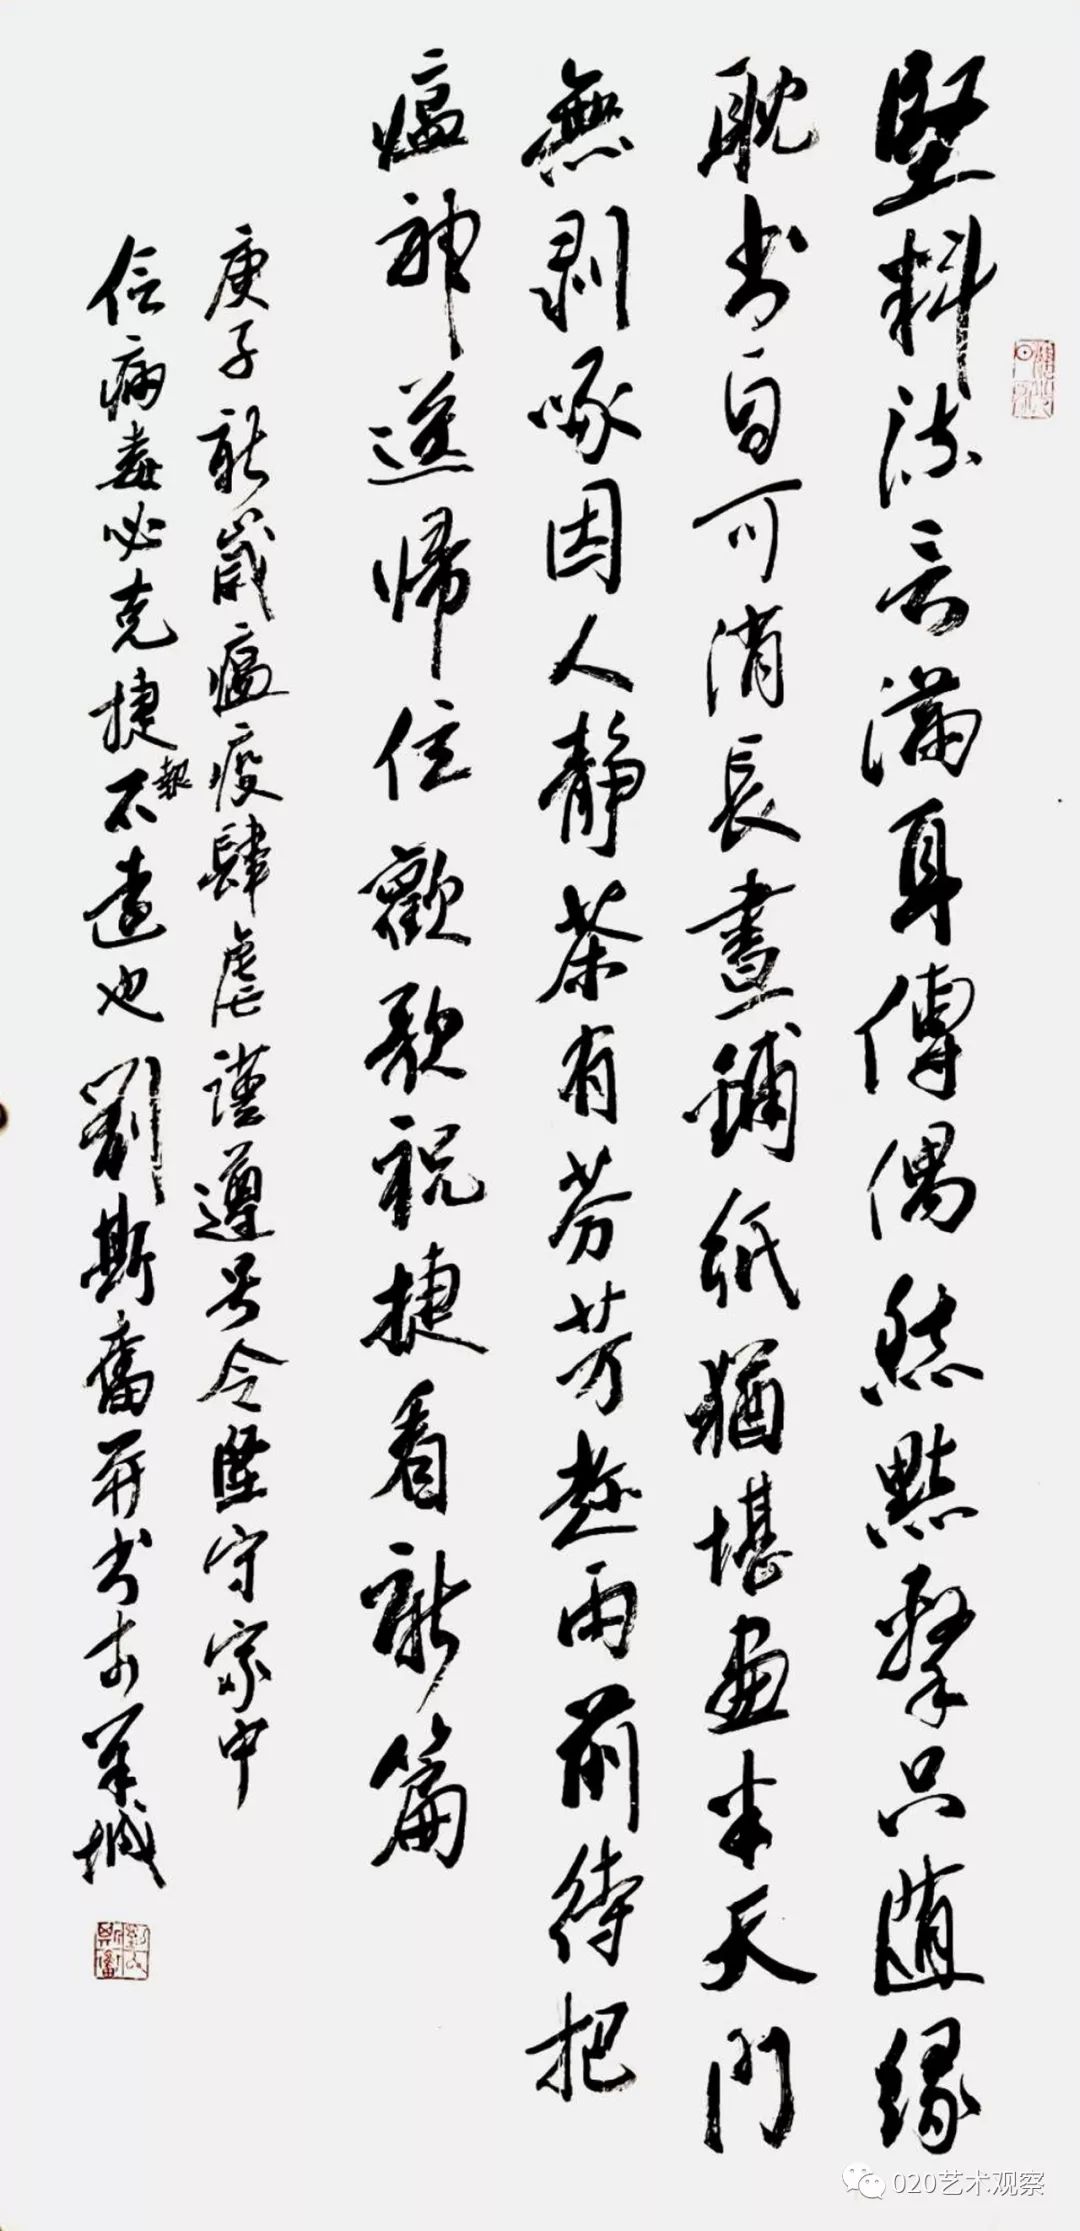 堅料流言滿耳傳偶然點擊只隨緣
耽书自可消長晝鋪紙猶堪畫半天門
無剥啄因人靜茶有芬芳趁雨前待把
瘟神送歸住歡歌祝捷看新篇
庚子新歲瘟疫肆虐謹遵号令堅守家中
信病毒必克捷報不遠也 劉斯奮并书於羊城
020艺术观察